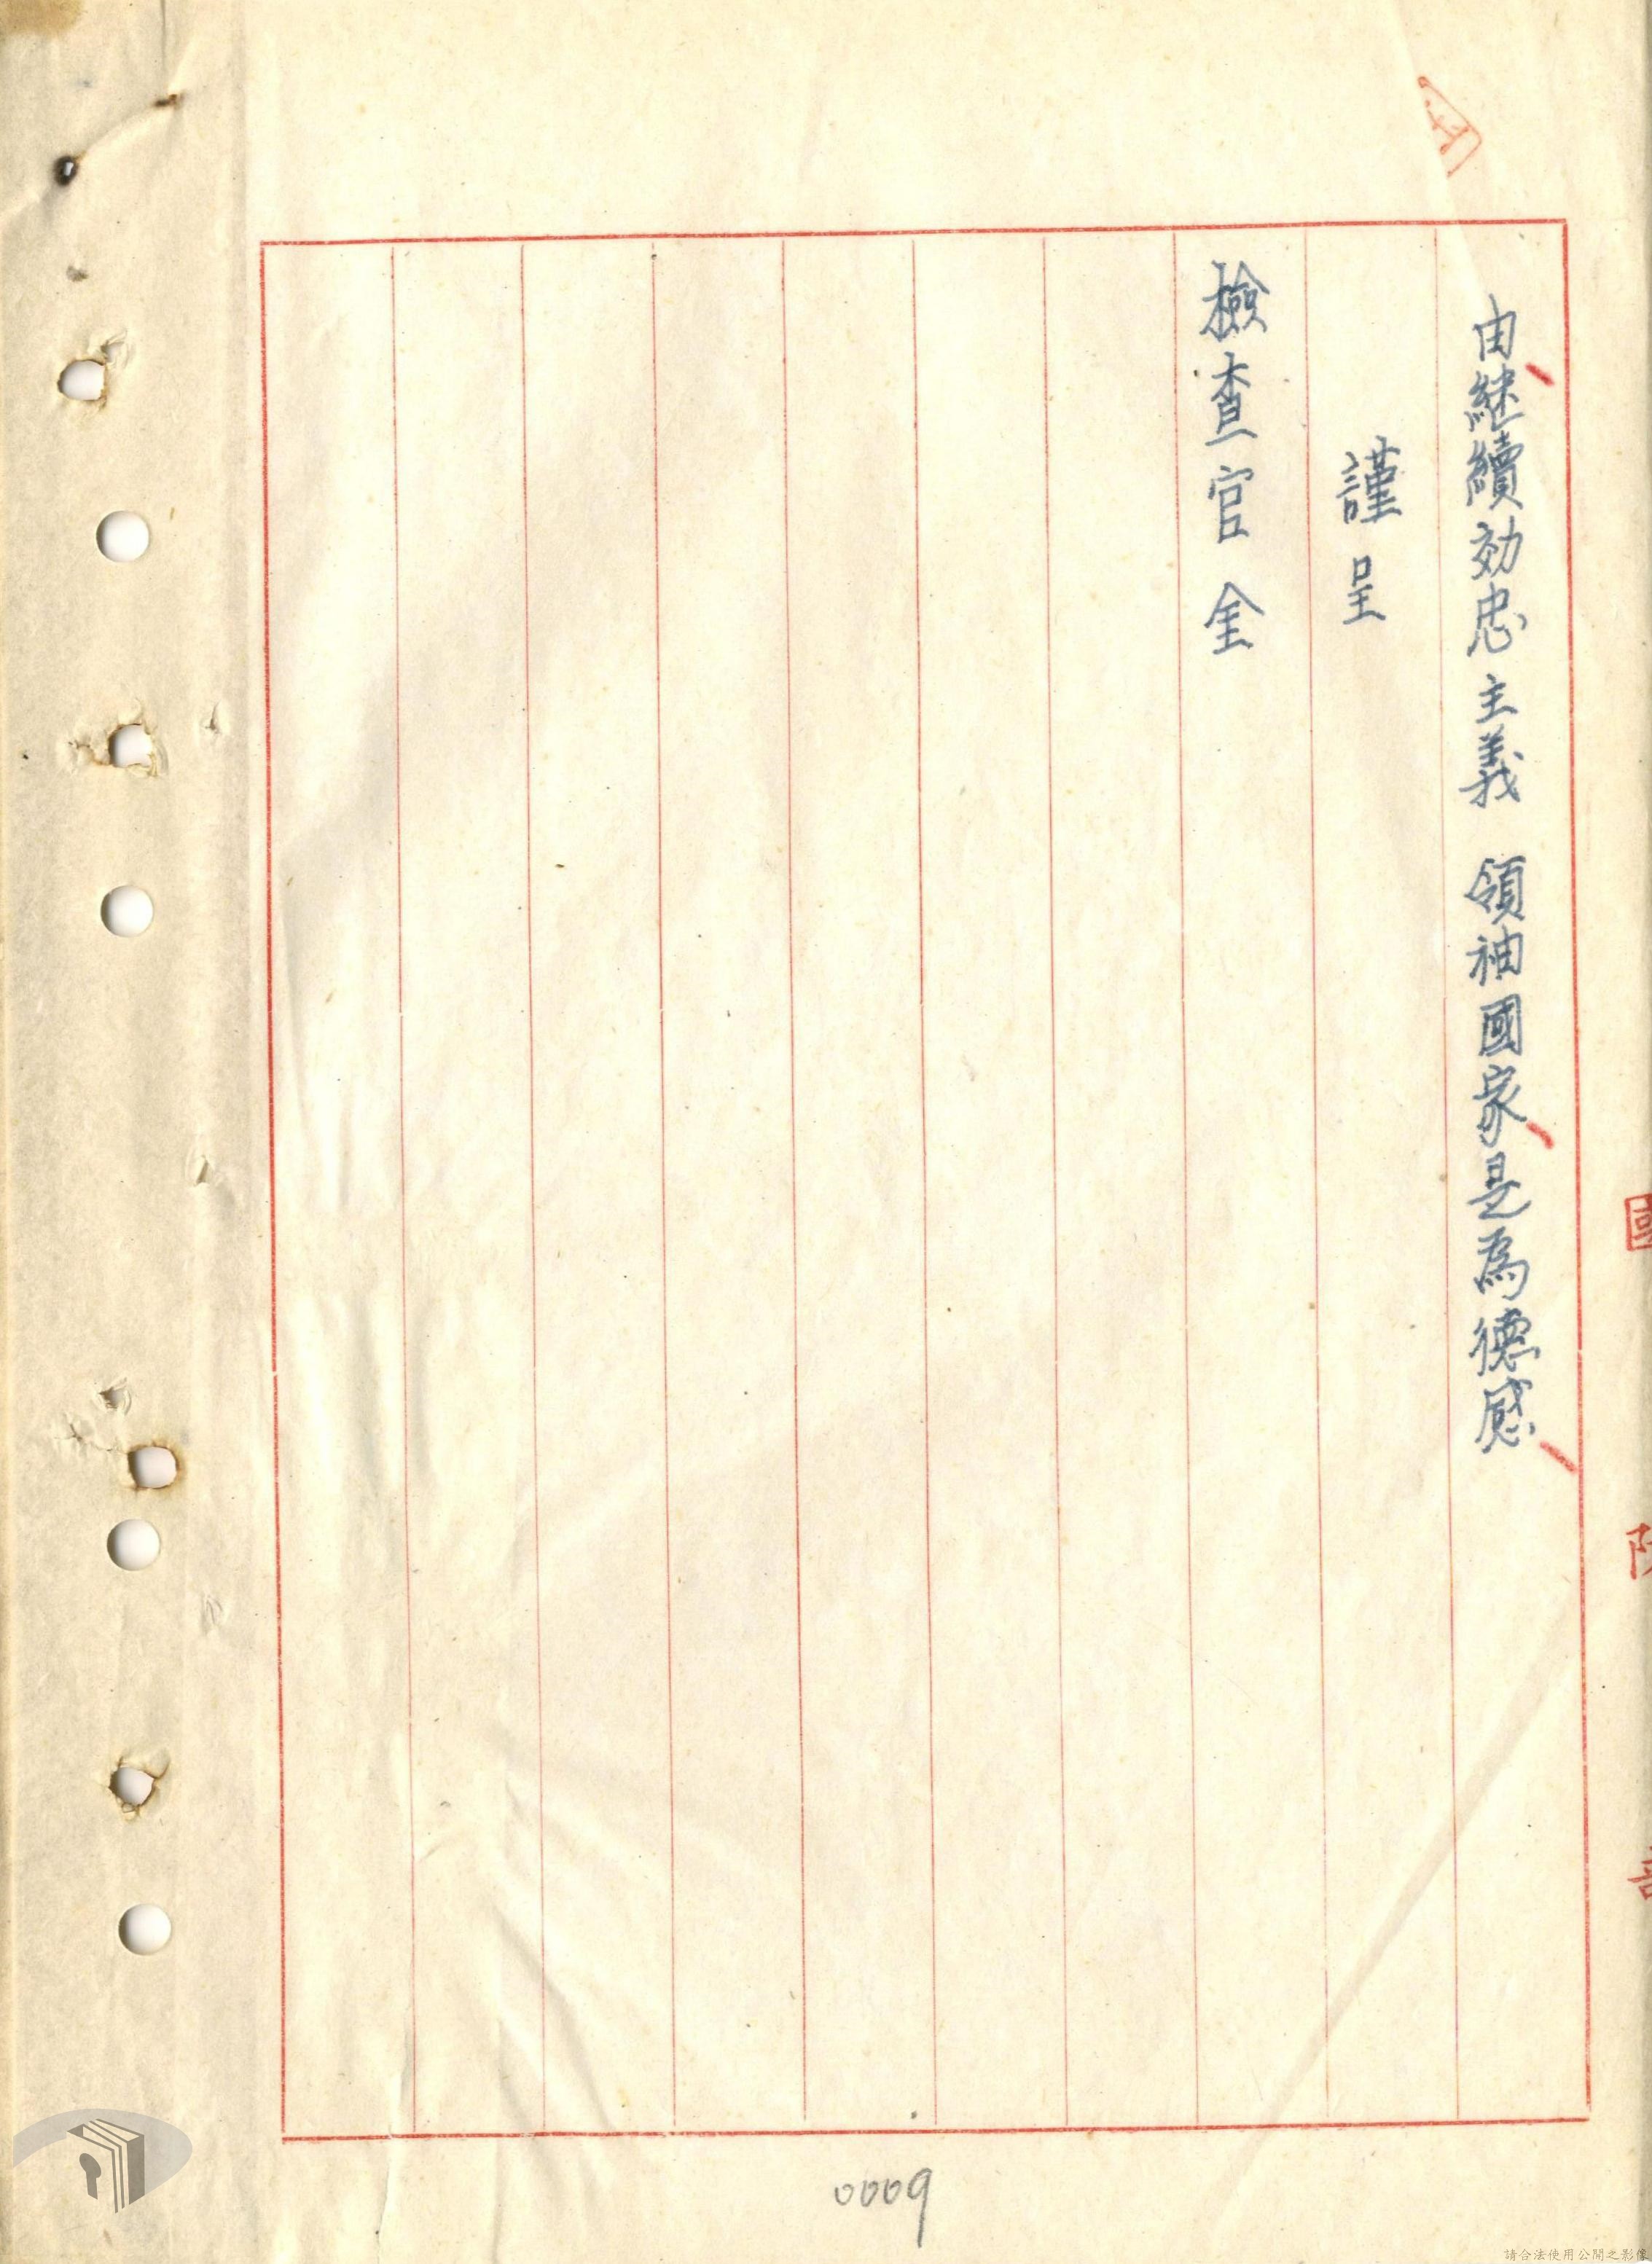 由継續効忠主義　領袖國家是為德感
謹呈
檢查官金
國
0009
請合法使用公開之影像